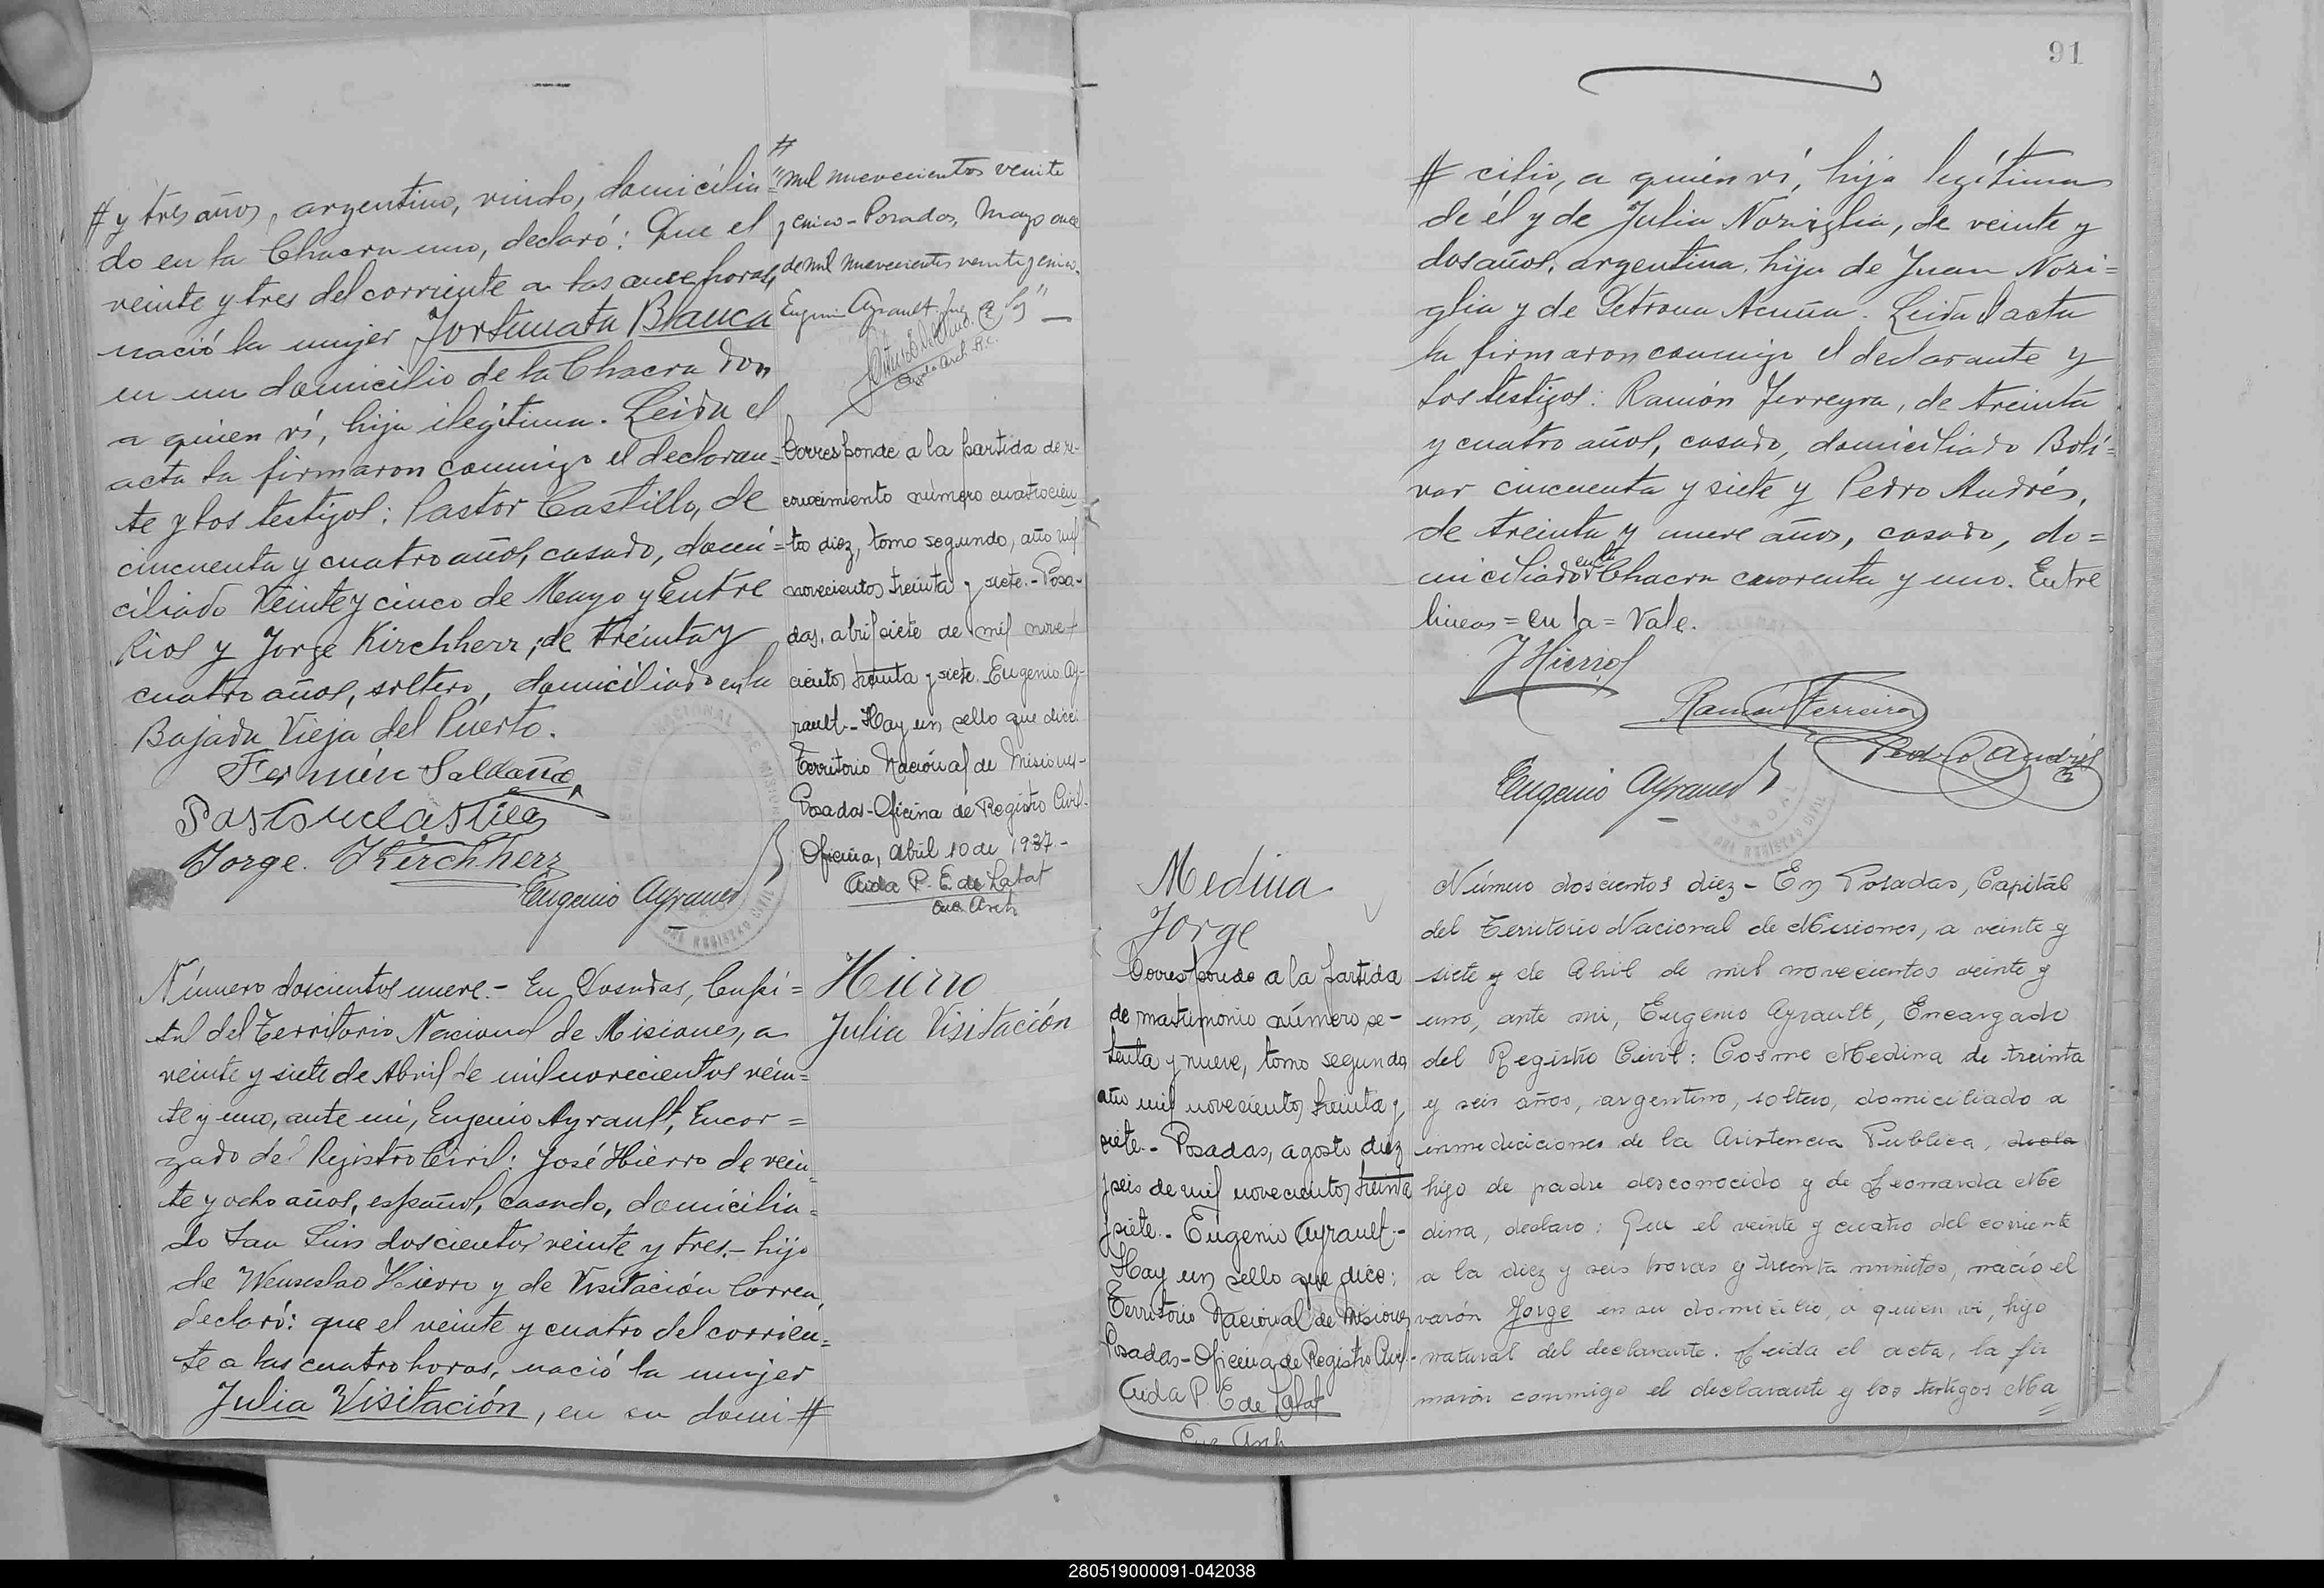 # y tres años, argentino, viudo, domicilia=
do en la Chacra uno, declaró: Que el
veinte y tres del corriente a las once horas,
nació la mujer Fortunata Blanca
en un domicilio de la Chacra don
a quien ví, hija ilegítima. Leida el
acta la firmaron conmigo el declaran=
te y los testigos: Pastor Castillo, de
cincuenta y cuatro años, casado, domi=
ciliado Veinte y cinco de Mayo y Entre
Rios y Jorge Kirchherr, de treinta y
cuatro años, soltero, domiciliado en la
Bajada Vieja del Puerto.
Fermín Saldaña
Pastor Castillo
Jorge. Kirchherr
Eugenio Ayrault
#
"mil nuevecientos veinte
y cinco - Posadas, Mayo once
de mil nuevecientos veinte y cinco.
Eugenio Ayrault.
Corresponde a la partida de re-
conocimiento número cuatrocien
tos diez, tomo segundo, año mil
novecientos treinta y siete. - Posa-
das, abril siete de mil nove-
cientos treinta y siete. Eugenio Ay-
rault - Hay un sello que dice:
Territorio Nacional de Misiones-
Posadas - Oficina de Registro Civil-
Oficina, Abril 10 de 1937.-
Aida P. E. de Lafat
Enc Arch
Número doscientos nueve. - En Posadas, Capi=
tal del Territorio Nacional de Misiones, a
veinte y siete de Abril de mil novecientos vein=
te y uno, ante mi, Eugenio Ayrault, Encar=
gado del Registro Civil: José Hierro de vein=
te y ocho años, español, casado, domicilia=
do San Luis doscientos veinte y tres. - hijo
de Wenseslao Hierro y de Visitación Correa,
declaró: que el veinte y cuatro del corrien=
te a las cuatro horas, nació la mujer
Julia Visitación, en su domi #
Hierro
Julia Visitación
91
# cilio, a quién ví, hija legítima
de él y de Julia Noziglia, de veinte y
dos años, argentina, hija de Juan Nozi=
glia y de Petrona Acuña. Leida el acta
la firmaron conmigo el declarante y
los testigos: Ramón Ferreyra, de treinta
y cuatro años, casado, domiciliado Bolí=
var cincuenta y siete y Pedro Andrés,
de treinta y nueve años, casado, do=
miciliado en la Chacra cuarenta y uno. Entre
lineas = en la = Vale.
J Hierro
Ramón Ferreira
Pedro Andrés
Eugenio Ayrault
Medina
Jorge
Corresponde a la partida
de matrimonio número se-
tenta y nueve, tomo segundo
año mil novecientos treinta y
siete. - Posadas, agosto diez
y seis de mil novecientos treinta
y siete. - Eugenio Ayrault -
Hay un sello que dice:
Territorio Nacional de Misiones
Posadas - Oficina de Registro Civil-
Aida P. E de Lafat
Enc Arch
Número doscientos diez - En Posadas, Capital
del Territorio Nacional de Misiones, a veinte y
siete y de Abril de mil novecientos veinte y
uno, ante mi, Eugenio Ayrault, Encargado
del Registro Civil: Cosme Medina de treinta
y seis años, argentino, soltero, domiciliado a
inmediciones de la Asistencia Publica,
hijo de padre desconocido y de Leonarda Me
dina, declaro: Que el veinte y cuatro del corriente
a la diez y seis horas y treinta minutos, nació el
varón Jorge en su domicilio, a quien vi, hijo
natural del declarante. Leida el acta, la fir
maron conmigo el declarante y los testigos Ma
=
280519000091-042038